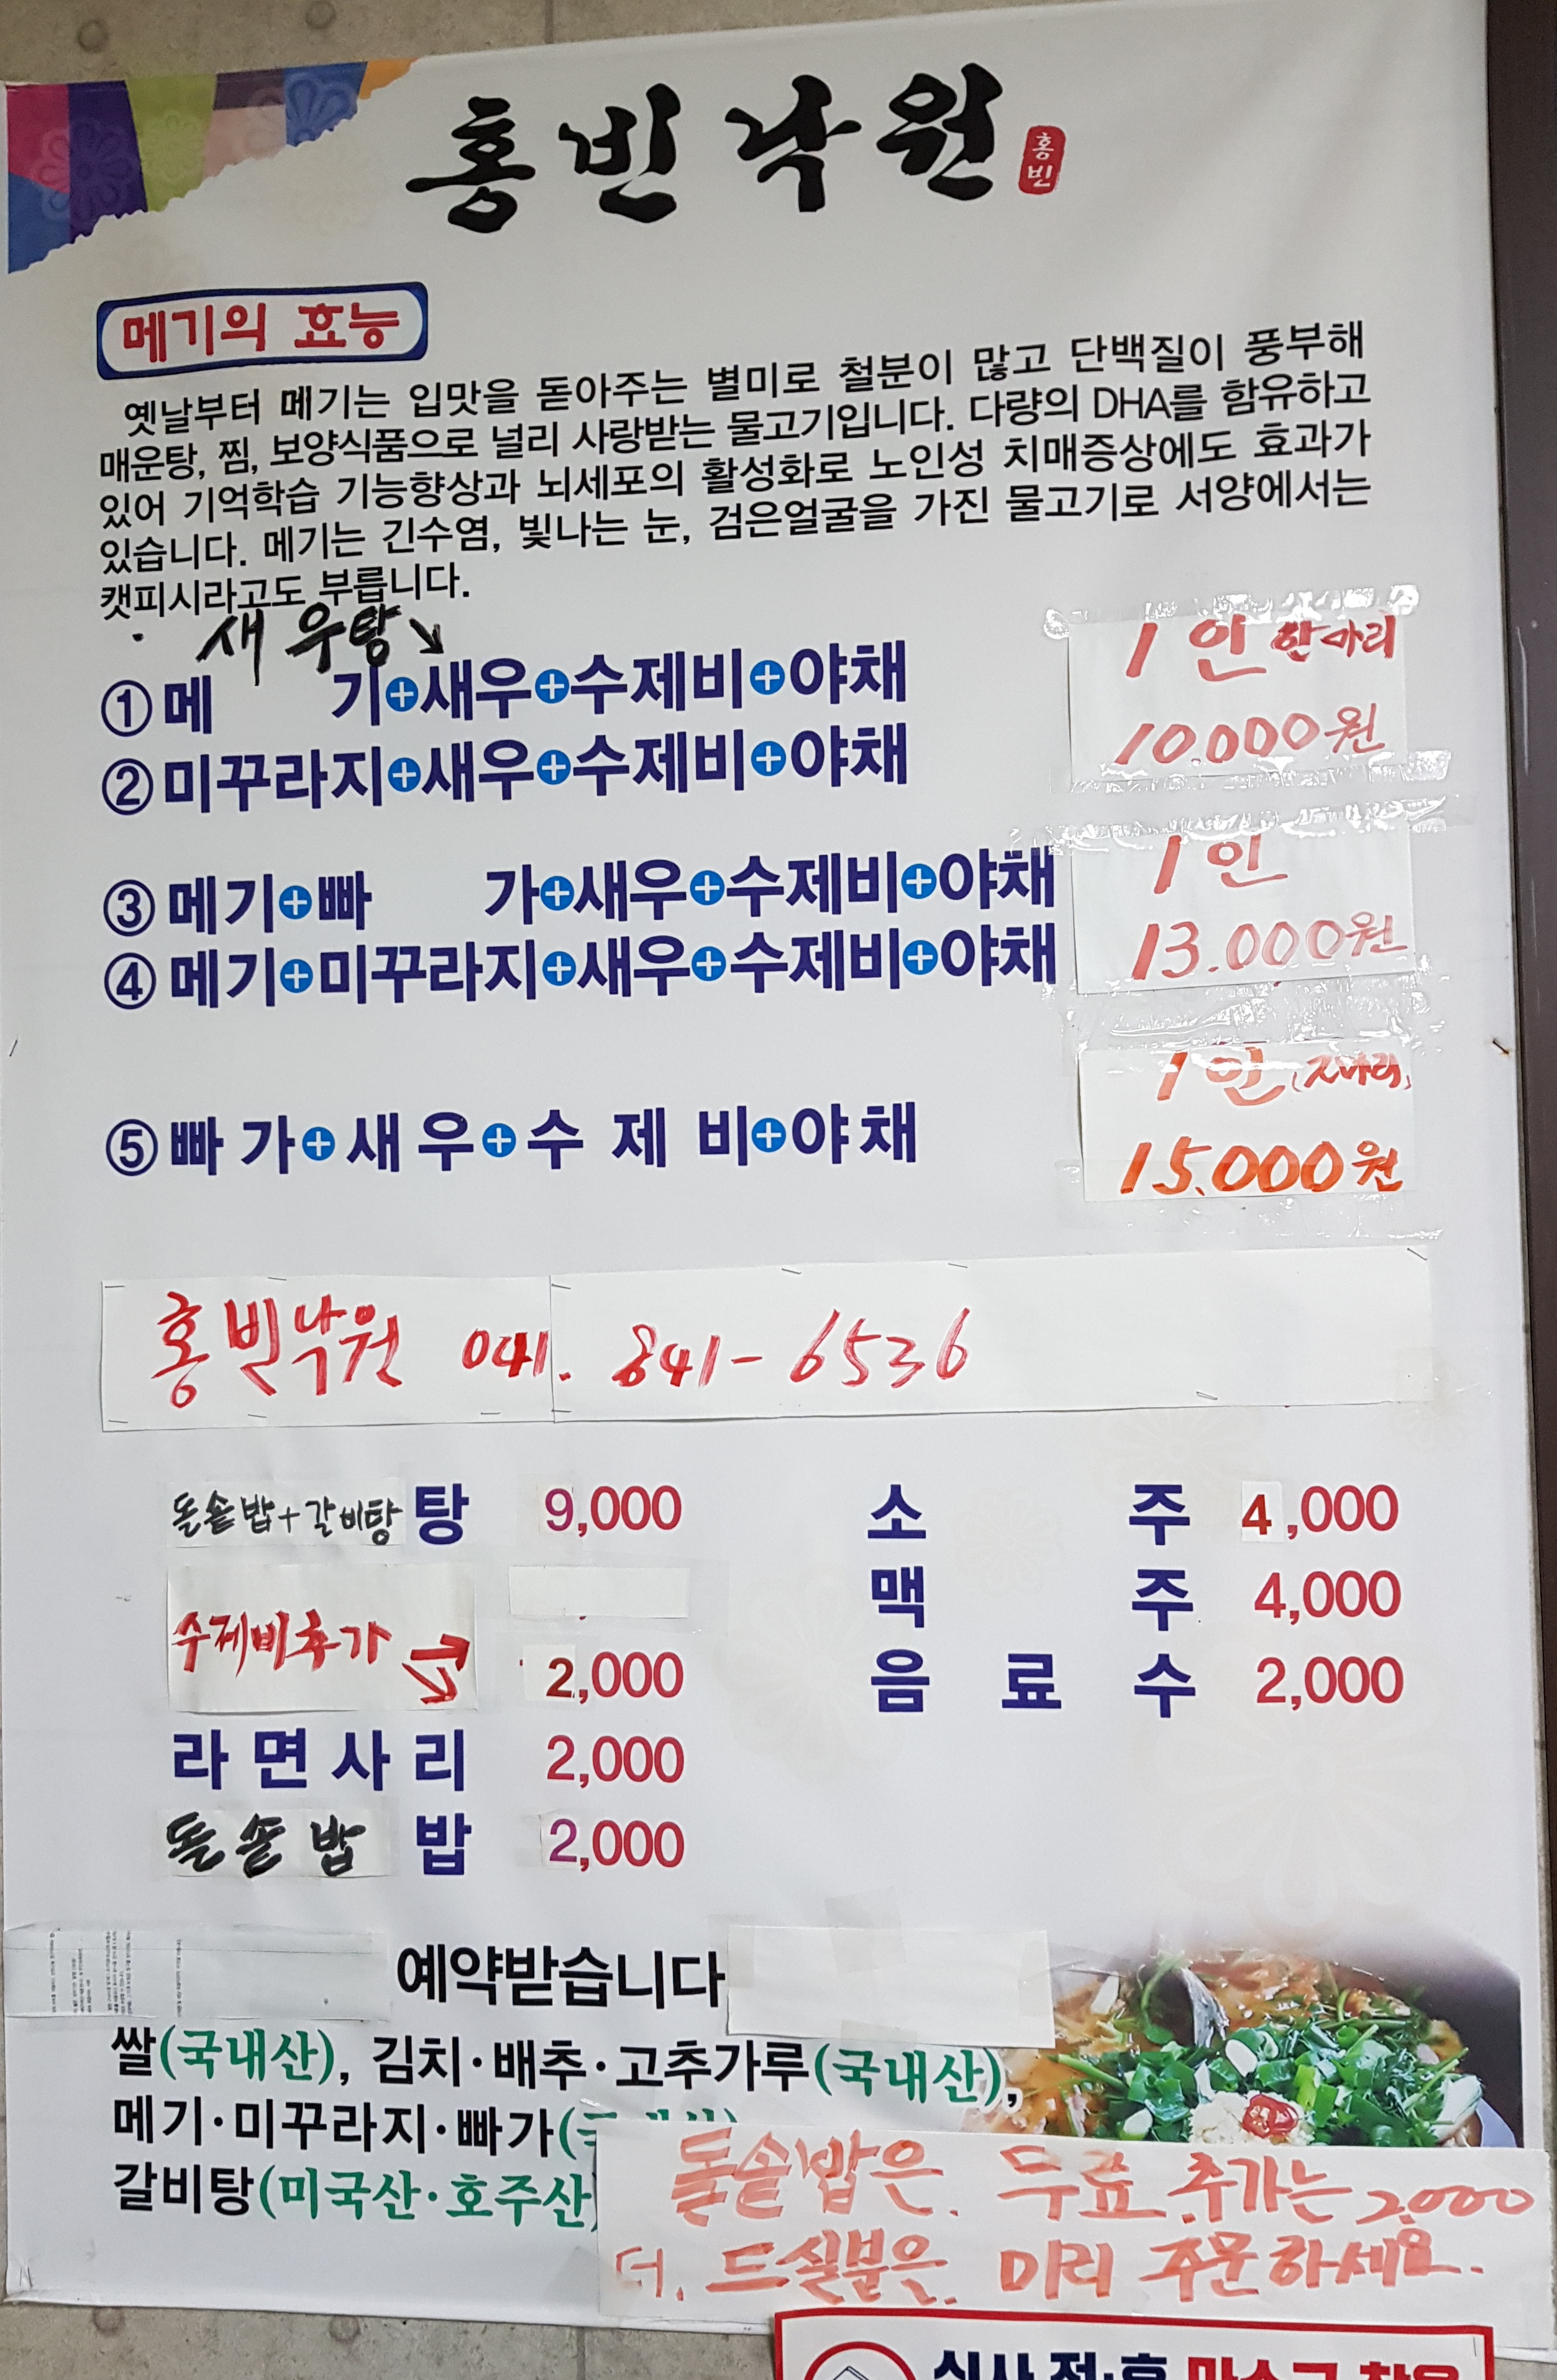 홍빈낙원 홍빈
메기의 효능
옛날부터 메기는 입맛을 돋아주는 별미로 철분이 많고 단백질이 풍부해
매운탕, 찜, 보양식품으로 널리 사랑받는 물고기입니다. 다량의 DHA를 함유하고
있어 기억학습 기능향상과 뇌세포의 활성화로 노인성 치매증상에도 효과가
있습니다. 메기는 긴수염, 빛나는 눈, 검은얼굴을 가진 물고기로 서양에서는
캣피시라고도 부릅니다.
새우탕↘
1인 한마리
①메 기+새우+수제비+야채
10.000원
②미꾸라지+새우+수제비+야채
1인
③메기+빠 가+새우+수제비+야채
13.000원
④메기+미꾸라지+새우+수제비+야채
1인
⑤빠가+새우+수제비+야채
15.000원
홍빈낙원 041. 841-6536
돌솥밥+갈비탕 탕 9,000
소 주 4,000
맥 주 4,000
수제비추가 2,000
음 료 수 2,000
라면사리 2,000
돌솥밥 밥 2,000
예약받습니다
쌀(국내산), 김치·배추·고추가루(국내산),
메기·미꾸라지·빠가(
갈비탕(미국산·호주산)
돌솥밥은. 무료. 추가는 2.000
더. 드실분은. 미리 주문하세요.
식사 전·후